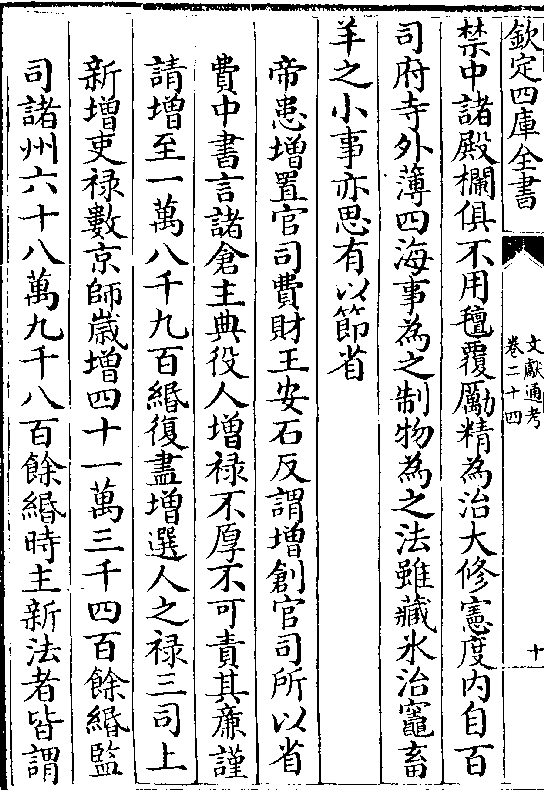 欽定四庫全書
文獻通考
卷二十四
十
禁中諸殿欄俱不用氊覆勵精為治大修憲度内自百
司府寺外薄四海事為之制物為之法雖藏氷治竈畜
羊之小事亦思有以節省
帝患增置官司費財王安石反謂增創官司所以省
費中書言諸倉主典役人增禄不厚不可責其亷謹
請增至一萬八千九百緡復盡增選人之禄三司上
新增吏禄數京師嵗增四十一萬三千四百餘緡監
司諸州六十八萬九千八百餘緡時主新法者皆謂